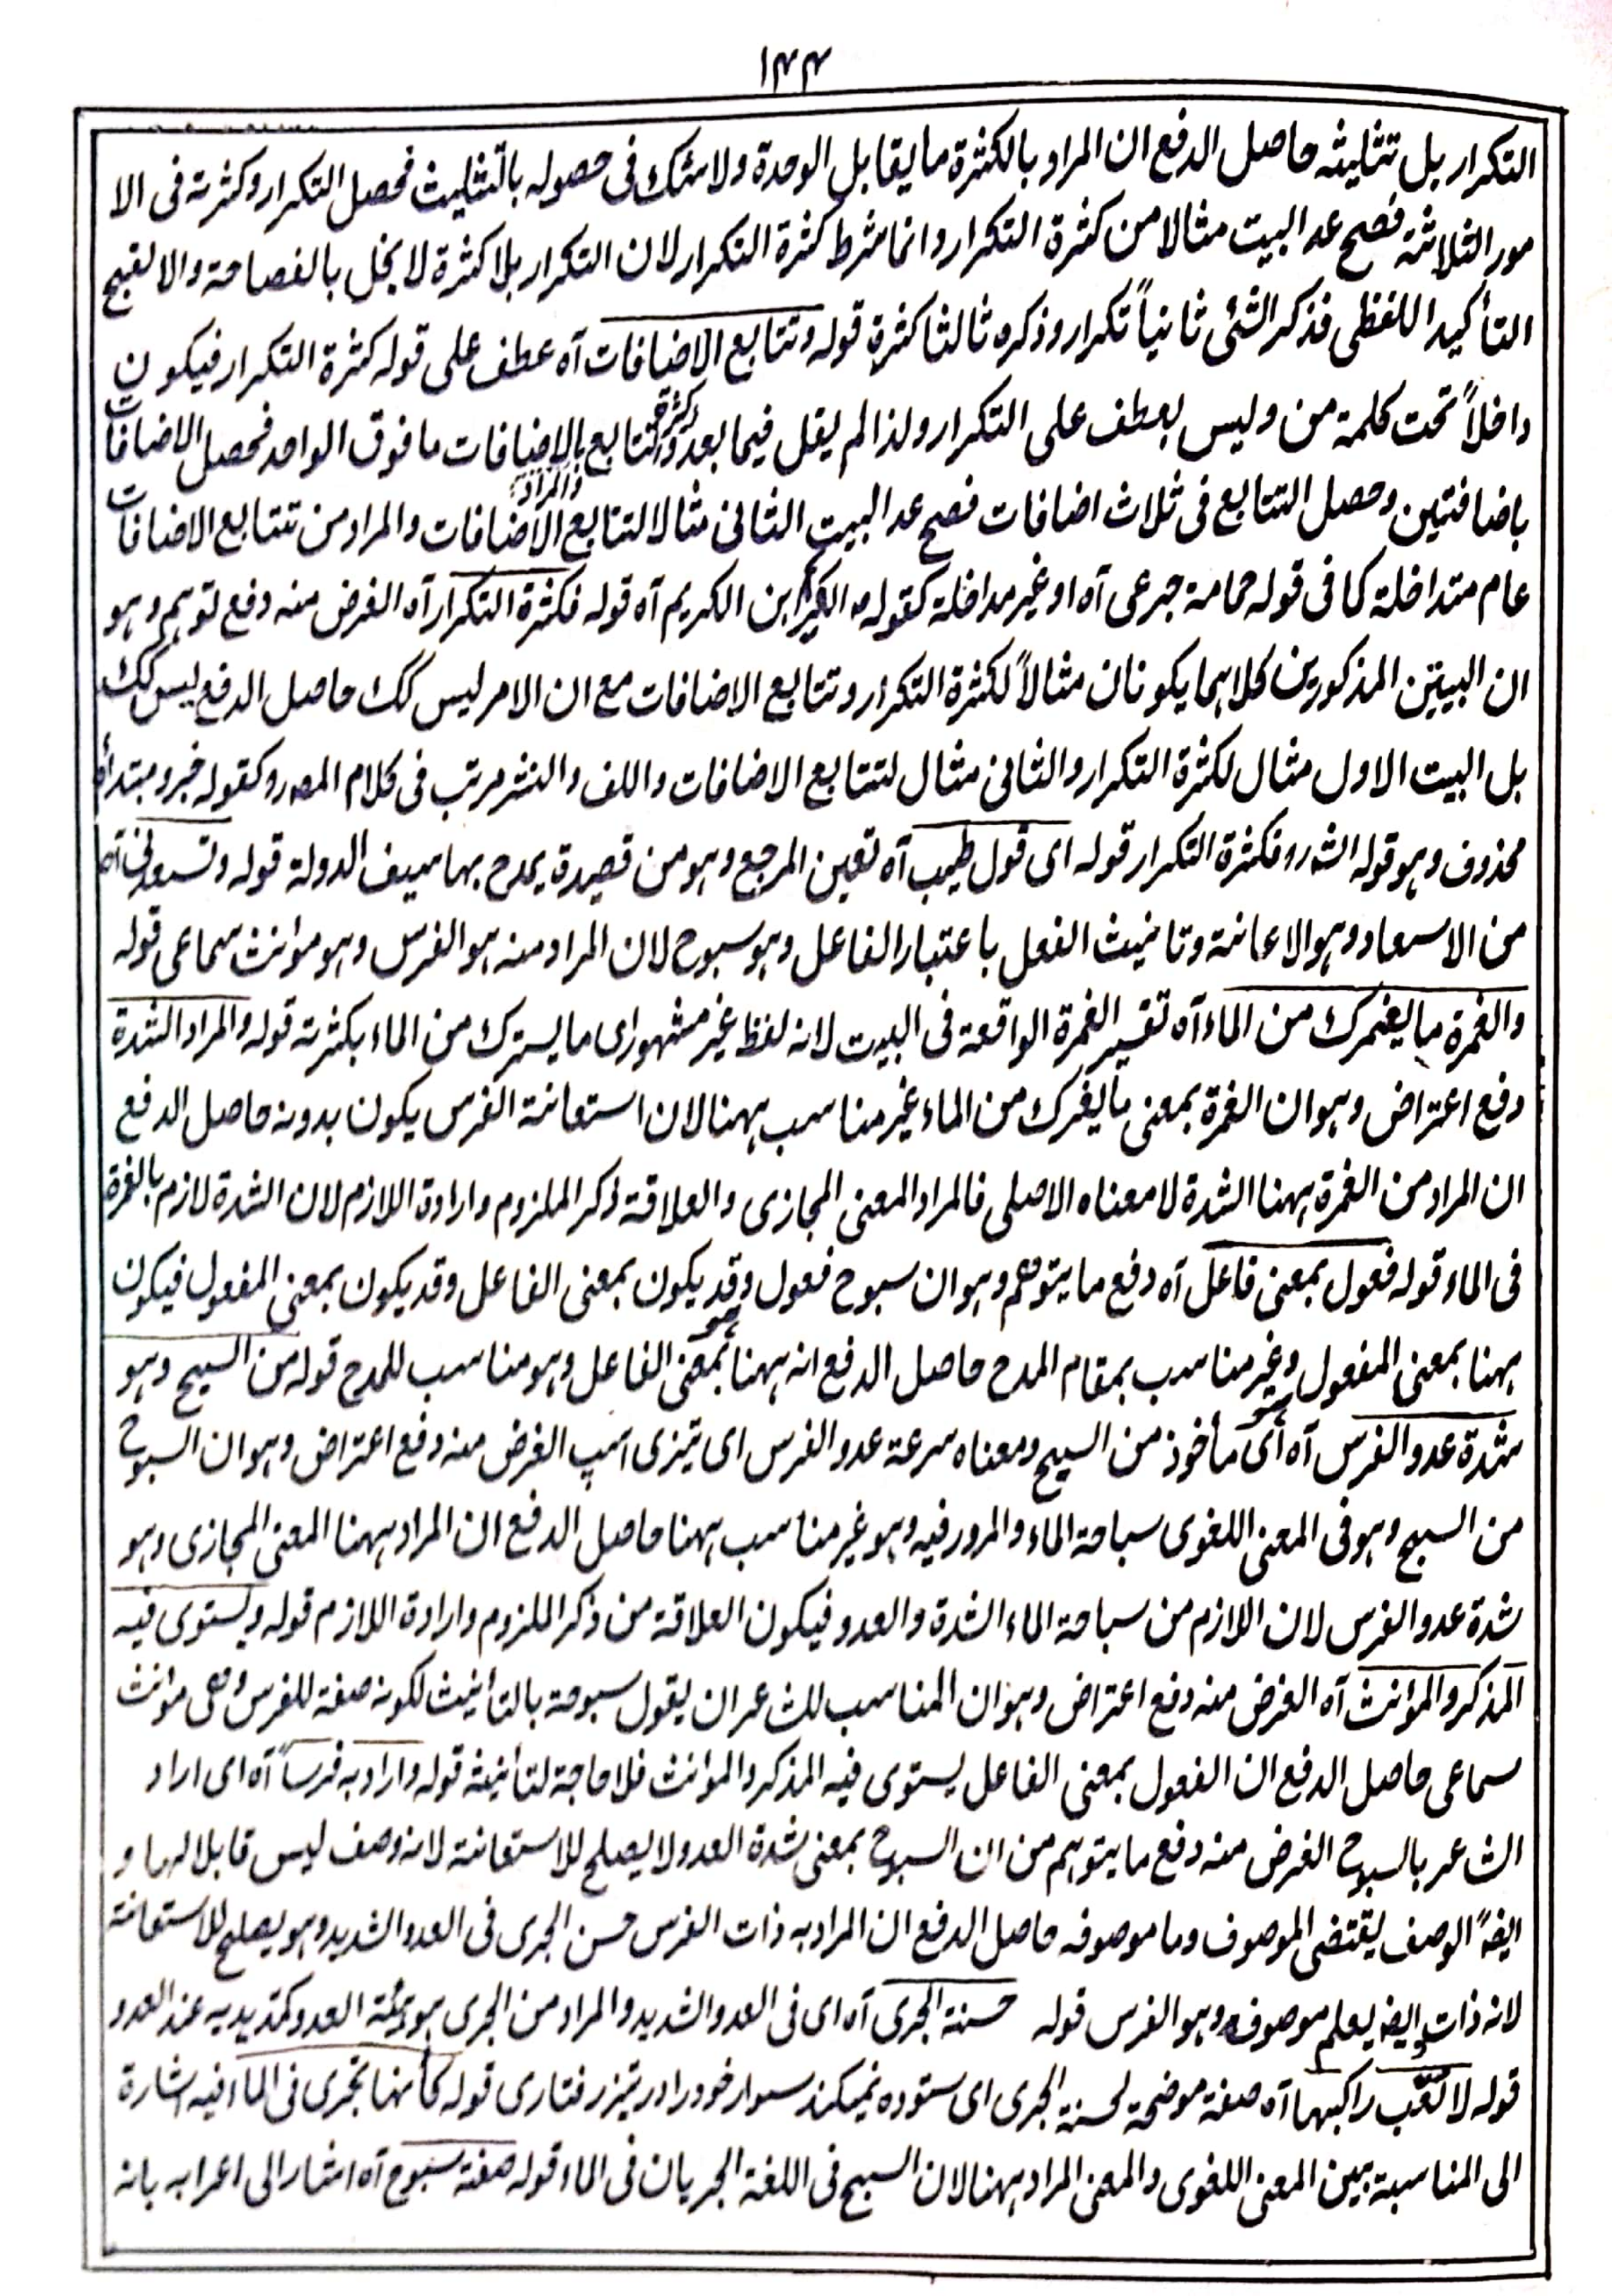 ۱۴۴
التکرار بل تثلیثہ حاصل الدفع ان المراد بالکثرة ما یقابل الوحدة ولا شک فی حصولہ بالتثلیث فحصل التکرار وکثرتہ فی الا
مور الثلاثة فصح عد البیت مثالا من کثرة التکرار وانما شرط کثرة التکرار لان التکرار بلا کثرة لا یخل بالفصاحة والا لقبح
التأکید اللفظی فذکر الشئی ثانیاً تکرار وذکره ثالثا کثرة قولہ وتتابع الاضافات آه عطف علی قولہ کثرة التکرار فیکون
داخلاً تحت کلمة من ولیس بعطف علی التکرار ولذا لم یقل فیما بعد وکثرة التتابع بالاضافات ما فوق الواحد فحصل الاضافات
باضافتین وحصل التتابع فی ثلاث اضافات فصح عد البیت الثانی مثالا لتتابع الاضافات والمراد من تتابع الاضافات
عام متداخلة کما فی قولہ حمامة جرعی آه او غیر متداخلة کقولہ الکریم ابن الکریم آه قولہ فکثرة التکرار آه الغرض منہ دفع توہم وہو
ان البیتین المذکورین کلاہما یکونان مثالاً لکثرة التکرار وتتابع الاضافات مع ان الامر لیس کک حاصل الدفع لیس کک
بل البیت الاول مثال لکثرة التکرار والثانی مثال لتتابع الاضافات واللف والنشر مرتب فی کلام المصـ رو کقولہ خبر ومبتدأه
محذوف وہو قولہ الشـ رو فکثرة التکرار قولہ ای قول طیب آه تعین المرجع وہو من قصیدة یمدح بہا سیف الدولة قولہ وتسعدنی آه
من الاسعاد وہو الاعانة وتانیث الفعل باعتبار الفاعل وہو سبوح لان المراد منہ ہو الفرس وہو مؤنث سماعی قولہ
والغمرة ما یغمرک من الماء آه تفسیر الغمرة الواقعة فی البیت لانہ لفظ غیر مشہور ای ما یسترک من الماء بکثرتہ قولہ والمراد الشدة
دفع اعتراض وہو ان الغمرة بمعنی ما یغمرک من الماء غیر مناسب ہہنا لان استعانة الفرس یکون بدونہ حاصل الدفع
ان المراد من الغمرة ہہنا الشدة لا معناه الاصلی فالمراد المعنی المجازی والعلاقة ذکر الملزوم وارادة اللازم لان الشدة لازم بالغمرة
فی الماء قولہ فعول بمعنی فاعل آه دفع ما یتوہم وہو ان سبوح فعول وقد یکون بمعنی الفاعل وقد یکون بمعنی المفعول فیکون
ہہنا بمعنی المفعول وہو غیر مناسب بمقام المدح حاصل الدفع انہ ہہنا بمعنی الفاعل وہو مناسب للمدح قولہ من السبح وہو
شدة عدو الفرس آه ای ہو مأخوذ من السبح ومعناه سرعة عدو الفرس ای تیزی اسپ الغرض منہ دفع اعتراض وہو ان السبوح
من السبح وہو فی المعنی اللغوی سباحة الماء والمرور فیہ وہو غیر مناسب ہہنا حاصل الدفع ان المراد ہہنا المعنی المجازی وہو
شدة عدو الفرس لان اللازم من سباحة الماء الشدة والعدو فیکون العلاقة من ذکر الملزوم وارادة اللازم قولہ ویستوی فیہ
المذکر والمؤنث آه الغرض منہ دفع اعتراض وہو ان المناسب للشاعر ان یقول سبوحة بالتأنیث لکونہ صفة للفرس وہی مؤنث
سماعی حاصل الدفع ان الفعول بمعنی الفاعل یستوی فیہ المذکر والمؤنث فلا حاجة لتأنیثہ قولہ واراد بہ فرساً آه ای اراد
الشاعر بالسبوح الغرض منہ دفع ما یتوہم من ان السبوح بمعنی شدة العدو لا یصلح للاستعانة لانہ وصف لیس قابلا لہا و
ایضاً الوصف یقتضی الموصوف وما موصوفہ حاصل الدفع ان المراد بہ ذات الفرس حسن الجری فی العدو الشدید وہو یصلح للاستعانة
لانہ ذات وایضا یعلم موصوفہ وہو الفرس قولہ حسنة الجری آه ای فی العدو الشدید والمراد من الجری ہو ہیئة العدو کمد یدیہ عند العدو
قولہ لا تتعب راکبہا آه صفة موضحة لحسنة الجری ای ستوده نمیکند سوار خود را در تیز رفتاری قولہ کأنہا تجری فی الماء فیہ اشارة
الی المناسبة بین المعنی اللغوی والمعنی المراد ہہنا لان السبح فی اللغة الجریان فی الماء قولہ صفة سبوح آه اشار الی اعرابہ بانہ